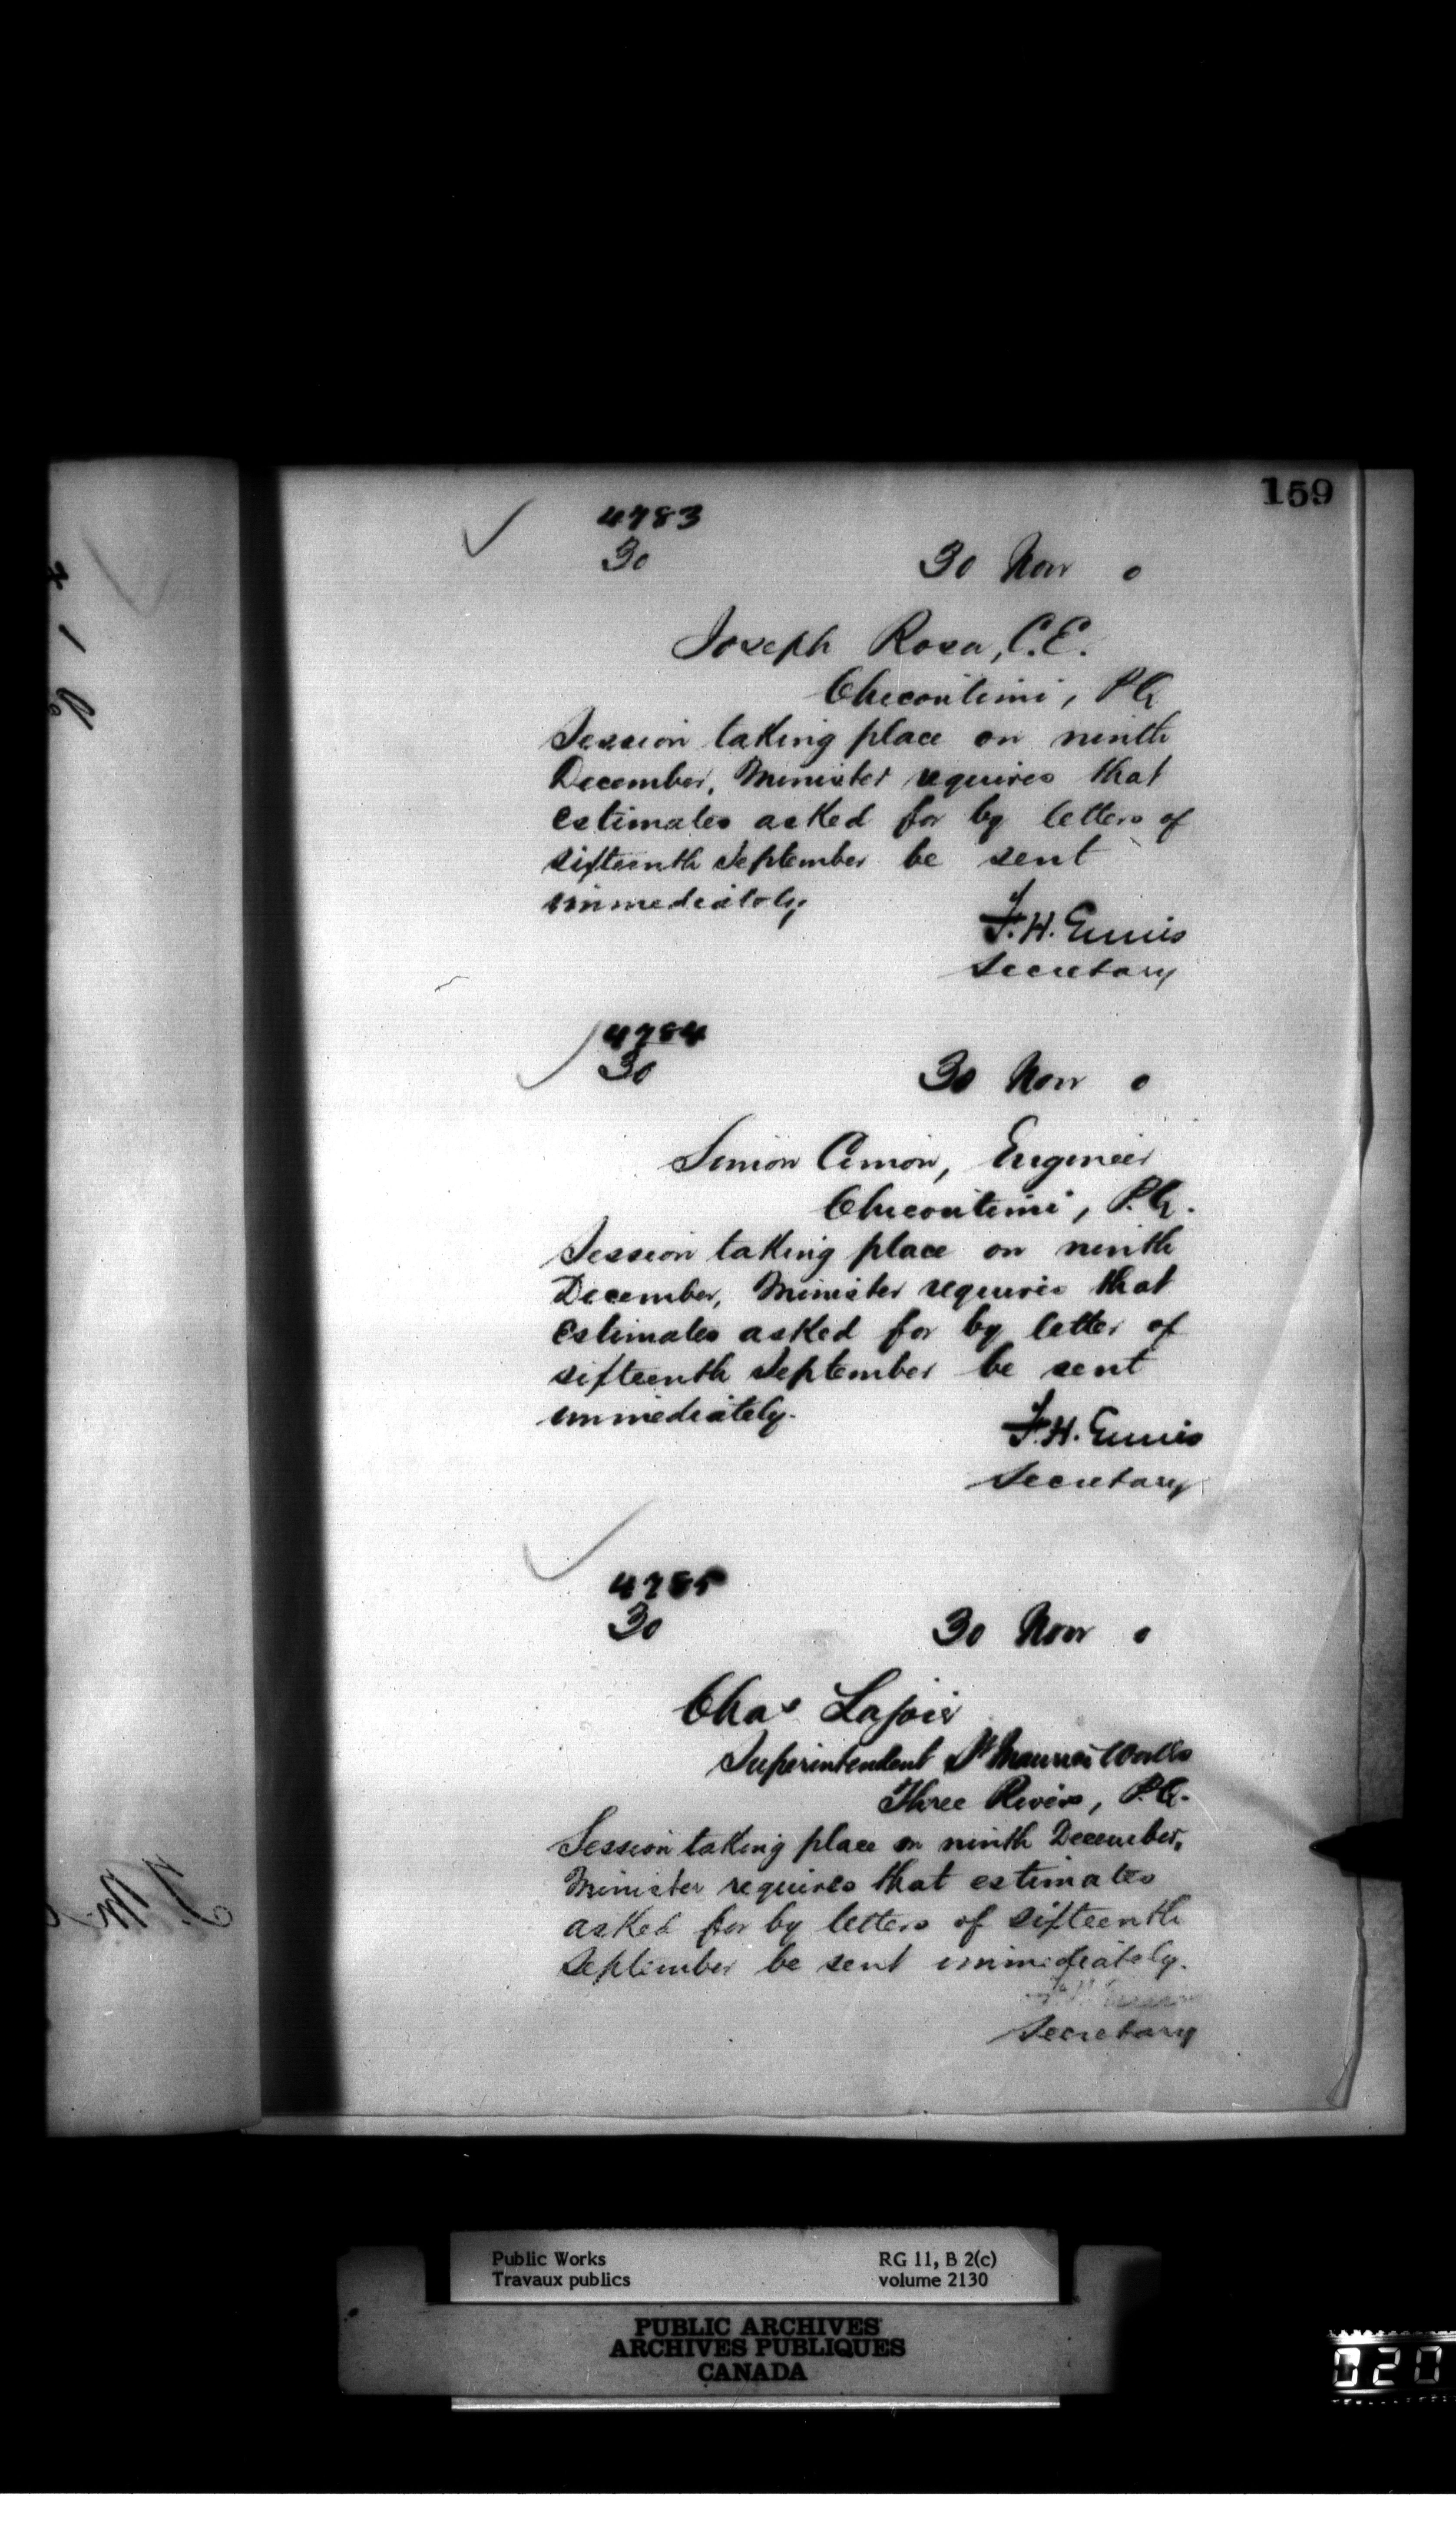 159
4783
30
30 Nov 0
Joseph Rosa, C.E.
Checoutimi, P.Q
Session taking place on ninth
December, Minister requires that
estimates asked for by letters of
sifteenth September be sent
immediately
F.H. Ennis
Secretary
4784
30
30 Nov 0
Simon Cimon, Engineer
Checoutimi, P.Q.
Session taking place on ninth
December, Minister requires that
estimates asked for by letter of
sifteenth September be sent
immediately.
F.H. Ennis
Secretary
4785
30
30 Nov 0
Chas Lajoie
Superintendent St Maurice Works
Three Rivers, P.Q.
Session taking place on ninth December,
Minister requires that estimates
asked for by letters of sifteenth
September be sent immediately.
F.H. Ennis
Secretary
Public Works
Travaux publics
RG 11, B 2(c)
volume 2130
PUBLIC ARCHIVES
ARCHIVES PUBLIQUES
CANADA
020